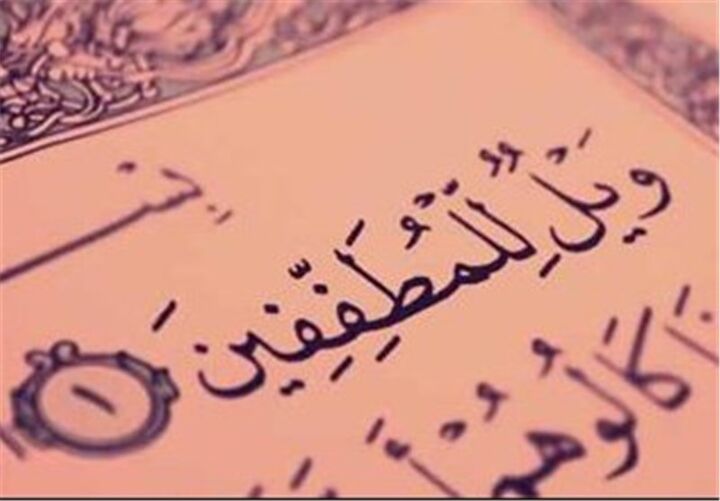 بِسْ
وَيْلٌ لِّلْمُطَفِّفِينَ ١
كَالُوهُمْ أَ